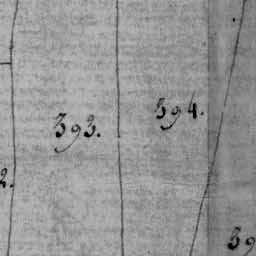 394.
393.
2.
39